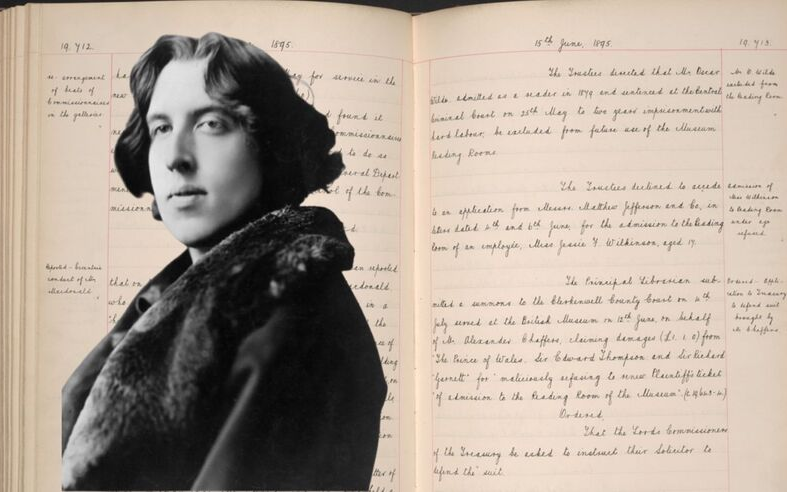 19,712.
1895.
re-arrangement
of beats of
Commissionaires
in the galleries
for service in the
new
found it
Commissionaires
to do so
of the Com-
missionn
Reported - Executive
conduct of Mr
Macdonald.
reported
that on
who
in a
the
15th June, 1895.
19,713.
The Trustees directed that Mr. Oscar
Wilde, admitted as a reader in 1879 and sentenced at the Central
Criminal Court on 25th May to two years' imprisonment with
hard labour, be excluded from future use of the Museum
Reading Rooms.
Mr. O. Wilde
excluded from
the Reading Room
The Trustees declined to accede
to an application from Messrs. Matthew Jefferson and Co, in
letters dated 4th and 6th June, for the admission to the Reading
Room of an employee, Miss Jessie F. Wilkinson, aged 17.
Admission of
Miss Wilkinson
to Reading Room
under age
refused.
The Principal Librarian sub-
mitted a summons to the Clerkenwell County Court on 4th
July served at the British Museum on 12th June, on behalf
of Mr. Alexander Chaffers, claiming damages (£1. 1. 0) from
"The Prince of Wales, Sir Edward Thompson and Sir Richard
"Garnett" for "maliciously refusing to renew Plaintiff's ticket
"of admission to the Reading Room of the Museum."
Ordered - Appli-
cation to Treasury
to defend suit
brought by
Mr Chaffers
Ordered.
That the Lords Commissioners
of the Treasury be asked to instruct their Solicitor to
defend the suit.